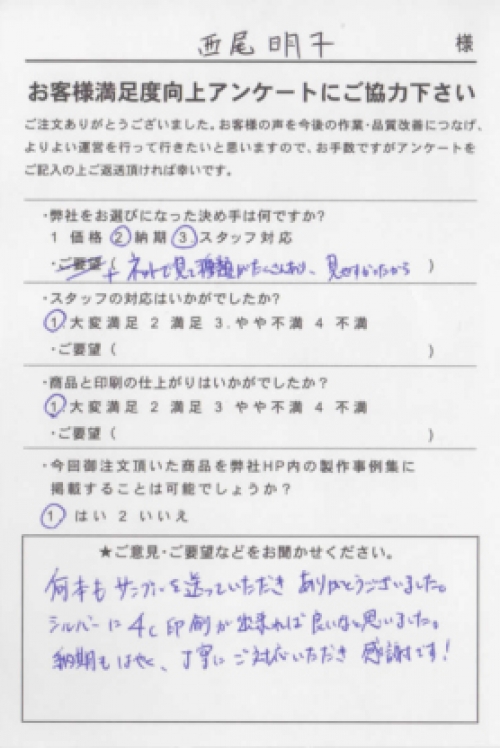 西尾明子 様
お客様満足度向上アンケートにご協力下さい
ご注文ありがとうございました。お客様の声を今後の作業・品質改善につなげ、
よりよい運営を行って行きたいと思いますので、お手数ですがアンケートを
ご記入の上ご返送頂ければ幸いです。
・弊社をお選びになった決め手は何ですか?
1 価格 2 納期 3.スタッフ対応
・ご要望( + ネットで見て種類がたくさんあり、見やすかったから )
・スタッフの対応はいかがでしたか?
1.大変満足 2 満足 3.やや不満 4 不満
・ご要望( )
・商品と印刷の仕上がりはいかがでしたか?
1.大変満足 2 満足 3 やや不満 4 不満
・ご要望( )
・今回御注文頂いた商品を弊社HP内の製作事例集に
掲載することは可能でしょうか?
1. はい 2 いいえ
★ご意見・ご要望などをお聞かせください。
何本もサンプルを送っていただき ありがとうございました。
シルバーに4c印刷が出来れば良いなと思いました。
納期もはやく、丁寧にご対応いただき 感謝です!